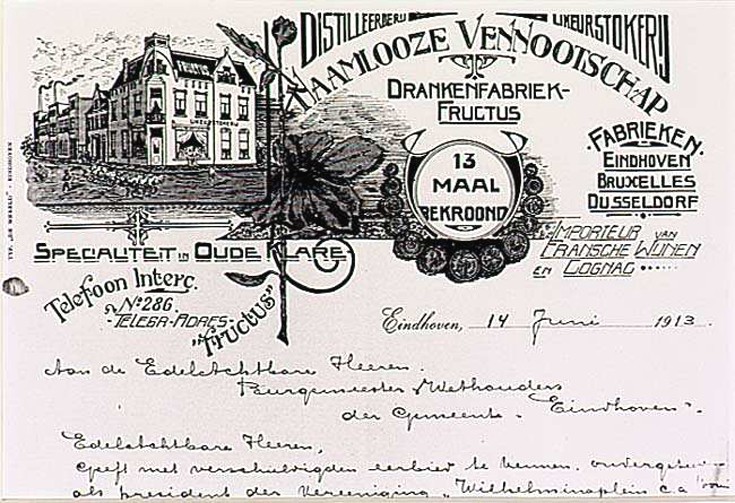 DISTILLEERDERIJ LIKEURSTOKERIJ
NAAMLOOZE VENNOOTSCHAP
DRANKENFABRIEK-
FRUCTUS
FRUCTUS
LIKEURSTOKERIJ
13
MAAL
BEKROOND
·FABRIEKEN·
EINDHOVEN
BRUXELLES
DUSSELDORF
IMPORTEUR VAN
FRANSCHE WIJNEN
EN COGNAC
TYP. „DE WERELD" - EINDHOVEN
SPECIALITEIT IN OUDE KLARE
Telefoon Interc.
No 286.
-TELEGR-ADRES-
„FRUCTUS"
Eindhoven, 14 Juni 1913.
Aan de Edelachtbare Heeren.
Burgemeester & Wethouders
der Gemeente „Eindhoven".
Edelachtbare Heeren,
Geeft met verschuldigden eerbied te kennen, ondergetee
als president der Vereeniging „Wilhelminaplein c.a.